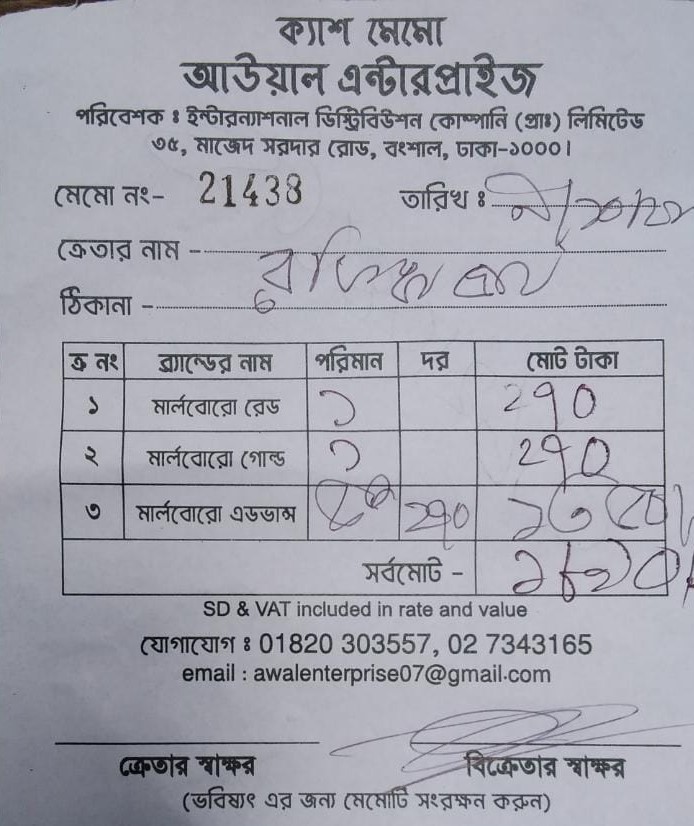 ক্যাশ মেমো
আউয়াল এন্টারপ্রাইজ
পরিবেশক ঃ ইন্টারন্যাশনাল ডিস্ট্রিবিউশন কোম্পানি (প্রাঃ) লিমিটেড
৩৫, মাজেদ সরদার রোড, বংশাল, ঢাকা-১০০০।
মেমো নং- 21438 তারিখ ঃ
ক্রেতার নাম -
ঠিকানা -
ক্র নং ব্র্যান্ডের নাম পরিমান দর মোট টাকা
১ মার্লবোরো রেড ১ ২৭০
২ মার্লবোরো গোল্ড ১ ২৭০
৩ মার্লবোরো এডভান্স ২৭০
সর্বমোট -
SD & VAT included in rate and value
যোগাযোগ ঃ 01820 303557, 02 7343165
email : awalenterprise07@gmail.com
ক্রেতার স্বাক্ষর বিক্রেতার স্বাক্ষর
(ভবিষ্যৎ এর জন্য মেমোটি সংরক্ষন করুন)